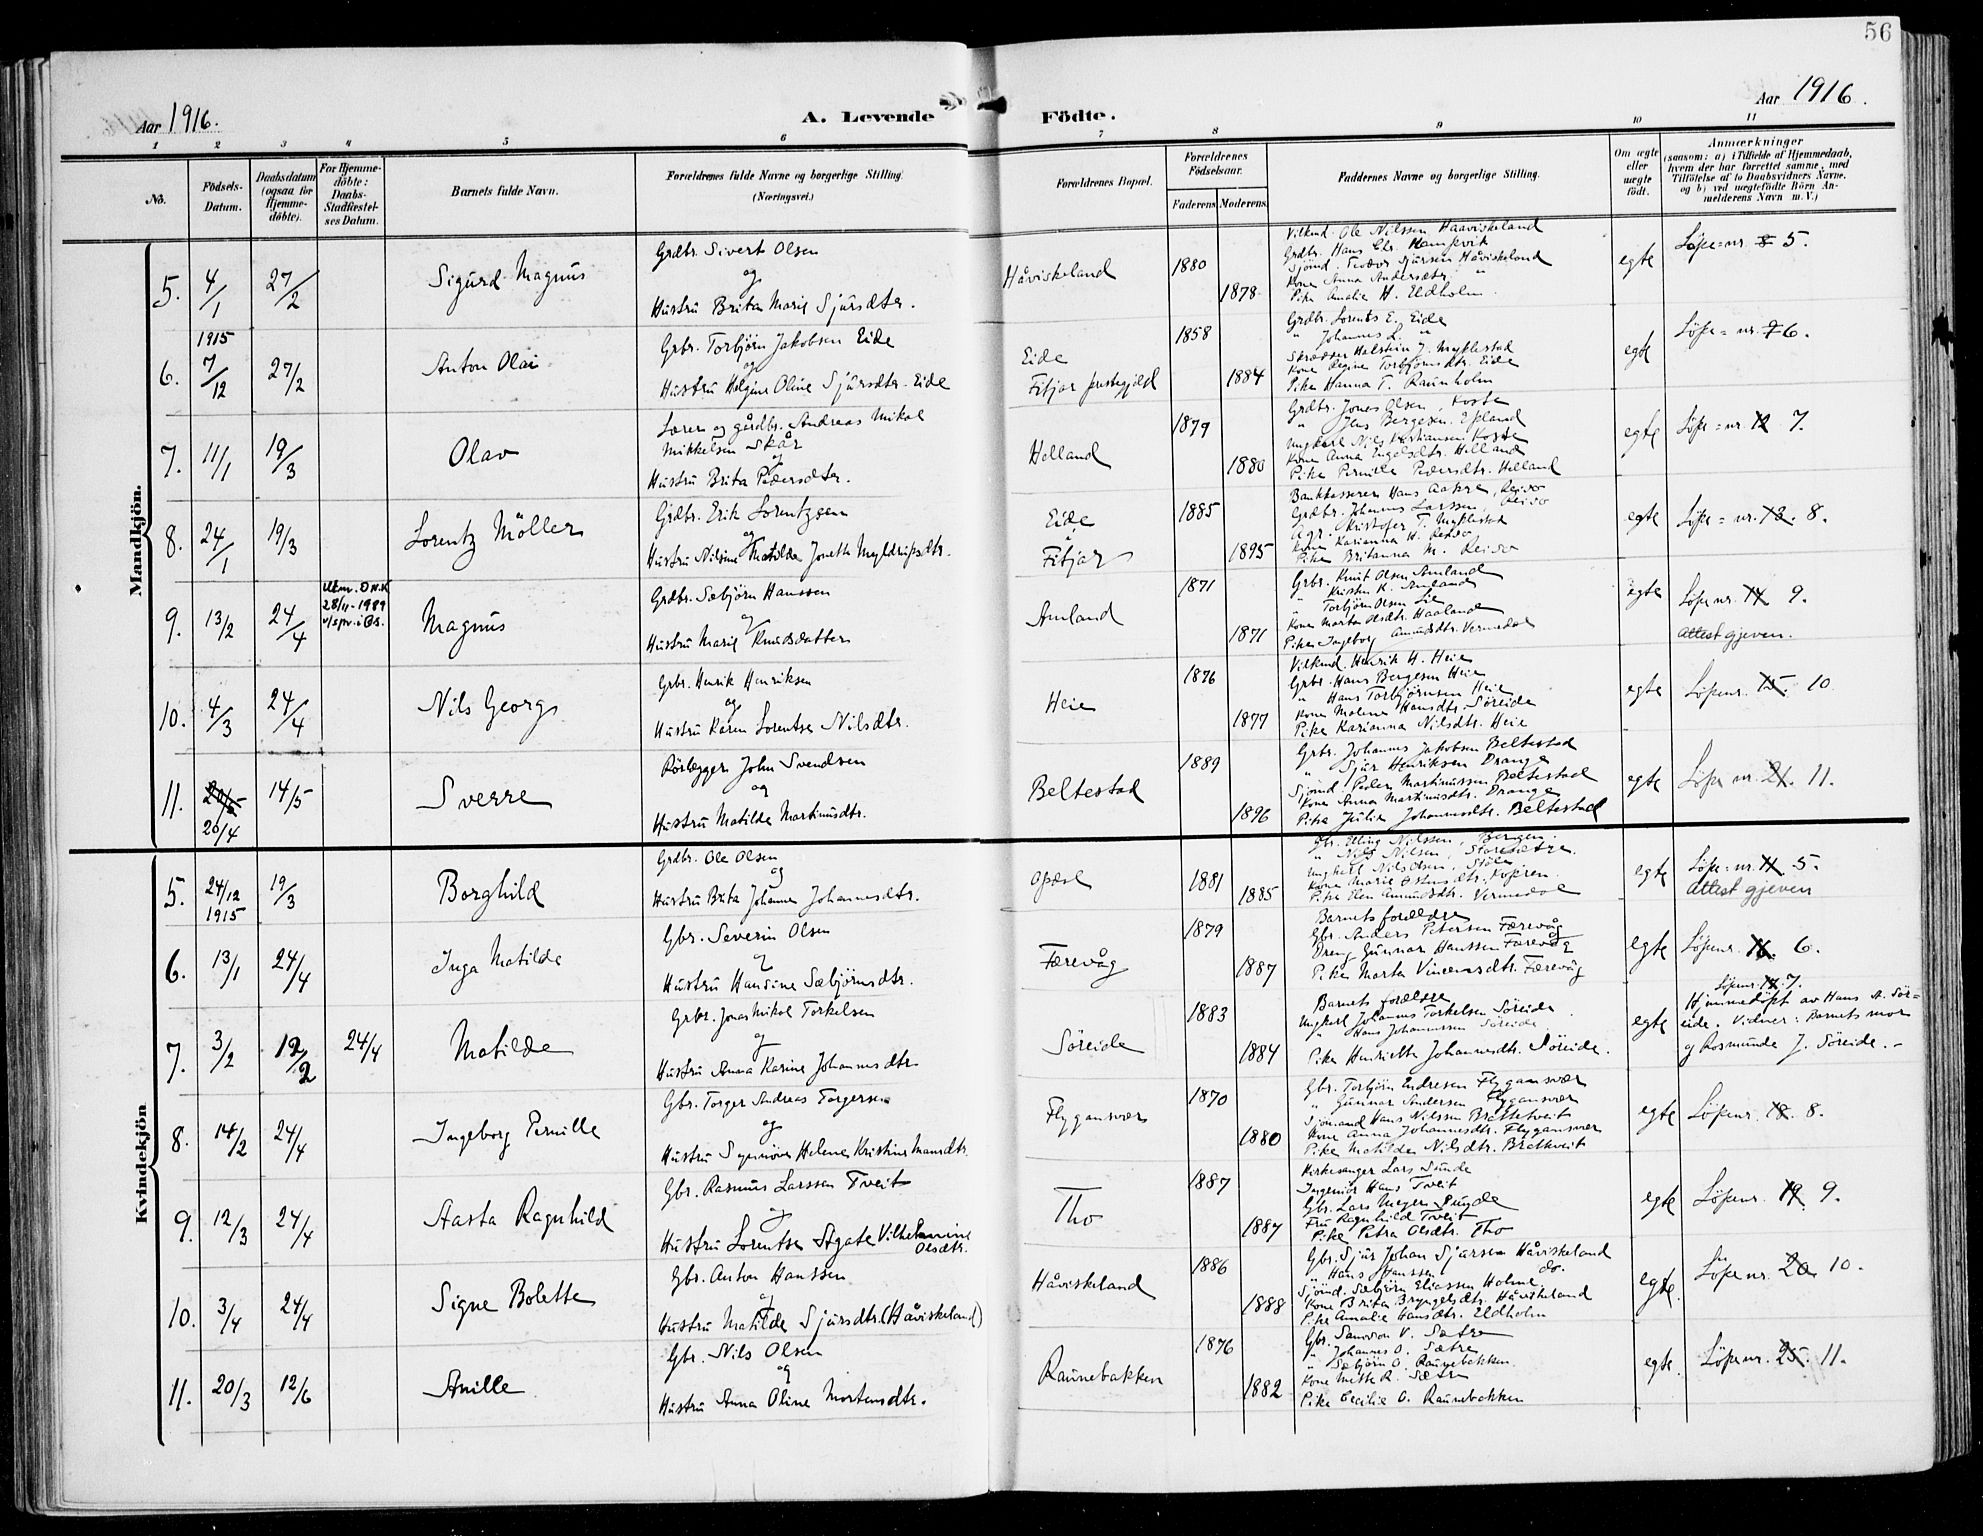 56
Aar 1916.
A. Levende Födte.
Aar 1916.
1 2 3 4 5 6 7 8 9 10 11
No.
Födsels-Datum.
Daabsdatum (ogsaa for Hjemme-döbte).
For Hjemme-döbte: Daabs-Stadfæstel-ses Datum.
Barnets fulde Navn.
Forældrenes fulde Navne og borgerlige Stilling. (Næringsvei.)
Forældrenes Bopæl.
Forældrenes Födselsaar.
Faderens. Moderens.
Faddernes Navne og borgerlige Stilling.
Om ægte eller uægte födt.
Anmærkninger
(saasom: a) i Tilfælde af Hjemmedaab, hvem der har forrettet samme, med Tilföielse af to Daabsvidners Navne, og b) ved uægtefödte Börn An-melderens Navn m. V.)
Mandkjön.
5. 4/1 27/2 Sigurd Magnus
Grdbr. Sivert Olsen
og
Hustru Brita Marie Sjursdtr.
Håviskeland 1880 1878
Vilkmd. Ole Nilssen Haaviskeland
Grdbr. Hans Chr.
Sjömd. Teodor Sjursen Håviskeland
Kone Anna Andersdtr. "
Pike Amalie H. Eldholm
egte Löpe=nr. 8 5.
6. 1915 7/12 27/2 Anton Olai
Grbr. Torbjörn Jakobsen Eide
og
Hustru Helgine Oline Sjursdtr. Eide
Eide
Fitjar prestegjeld
1858 1884
Grdbr. Lorents E. Eide
" Johannes L. "
Skrædder Halstein J. Myklestad
Kone Regine Torbjörnsdtr. Eide
Pike Hanna T. Raunholm
egte Löpe=nr. 7 6.
7. 11/1 19/3 Olav
Lærer og gårdbr. Andreas Mikal
Mikkelsen Skår
og
Hustru Brita Pedersdtr.
Helland 1879 1880
Grdbr. Jonas Olsen, Koste
" Jens Bergesen, Epland
Ungkarl Nils Kristiansen Koste
Kone Anna Engelsdtr. Helland
Pike Pernille Pedersdtr. Helland
egte Löpe=nr. 12 7.
8. 24/1 19/3 Lorentz Möller
Grdbr. Erik Lorentzsen
og
Hustru Nilsine Matilde Jonetta Myldripsdtr.
Eide
i
Fitjar
1885 1895
Bankkasserer Hans Aakre, Reiso
Grdbr. Johannes Larssen, Reiso
Agr. Kristofer T. Myklestad
Kone Karianna H. Reiso
Pike Britanna M. Reiso
egte Löpe=nr. 13. 8.
9. 13/2 24/4 Utm. D.N.K 28/11-1989 v/spr. i Os. Magnus
Grdbr. Sæbjörn Hanssen
og
Hustru Marie Knudsdatter
Amland 1871 1871
Grbr. Knut Olsen Amland
" Kristen K. Amland
" Torbjörn Olsen Lie
Kone Marta Olsdtr. Haaland
Pike Ingeborg Amundsdtr. Vermedal
egte Löpenr. 14 9.
Attest gjeven.
10. 4/3 24/4 Nils Georg
Grbr. Henrik Henriksen
og
Hustru Karen Lorentse Nilsdtr.
Heie 1876 1877
Vilkmd. Henrik H. Heie
Grbr. Hans Bergesen Heie
" Hans Torbjörnsen Heie
Kone Malene Hansdtr. Söreide
Pike Karianna Nilsdtr. Heie
egte Löpenr. 15. 10
11. 20/5 20/4 14/5 Sverre
Rörlægger John Svendsen
og
Hustru Matilde Martinusdtr.
Beltestad 1889 1896
Grbr. Johannes Jakobsen Beltestad
" Sjur Henriksen Drange
Sjömd. Peder Martinussen Beltestad
Kone Anna Martinusdtr. Drange
Pike Julie Johannesdtr. Beltestad
egte Löpe nr. 21. 11.
Kvindekjön
5. 24/12 1915 19/3 Borghild
Grdbr. Ole Olsen
og
Hustru Brita Johanne Johannesdtr.
Opsal 1881 1885
Gbr. Elling Nilssen, Bergen.
" Nils Nilsen, Storesætre.
Ungkarl Nilsdsen, Stöle
Kone Marie Ostensdtr. Kopren.
Pike Elen Amundsdtr. Vermedal
egte Löpe=nr. 11 5.
Attest gjeven
6. 13/1 24/4 Inga Matilde
Gbr. Severin Olsen
og
Hustru Hansine Sæbjörnsdtr.
Færevåg 1879 1887
Barnets forældre
Gbr. Anders Petersen Færevåg
Dreng Gunnar Hanssen Færevåg
Pike Marta Vincensdtr. Færevåg
egte Löpenr. 16. 6.
7. 3/2 12/2 24/4 Matilde
Grbr. Jonas Mikal Torkelsen
og
Hustru Anna Karine Johannesdtr
Söreide 1883 1884
Barnets forældre
Ungkarl Johannes Torkelsen Söreide
" Hans Johannessen Söreide
Pike Henriette Johannesdtr. Söreide.
egte Löpenr. 17. 7.
Hjemmedöpt av Hans A. Sör=
eide. Vidner: Barnets mor
og Rosmunde J. Söreide. -
8. 14/2 24/4 Ingeborg Pernille
Gbr. Torger Andreas Torgersen
og
Hustru Synnöve Helene Kristine Mansdtr.
Flygansvær 1870 1880
Gbr. Torbjörn Endresen Flygansvær
" Gunnar Andersen Flygansvær
Sjömand Hans Nilssen Bratketveit
Kone Anna Johannesdtr. Flygansvær
Pike Matilde Nilsdtr. Bratkveit
egte Löpenr. 18. 8.
9. 12/3 24/4 Aasta Ragnhild
Gbr. Rasmus Larssen Tveit
og
Hustru Lorentse Agate Vilhelmine
Olsdtr.
Tho 1887 1887
Kirkesanger Lars Sunde
Ingeniör Hans Tveit
Gbr. Lars Meyer
Fru Ragnhild Tveit
Pike Petra Olsdtr. Tho
egte Löpenr. 19. 9.
10. 3/4 24/4 Signe Bolette
Gbr. Anton Hanssen
og
Hustru Matilde Sjursdtr. (Håviskeland)
Håviskeland 1886 1888
Gbr. Sjur Johan Sjursen Håviskeland
" Hans Hanssen do.
Sjömd. Sæbjörn Eliassen Holme
Kone Brita Bryngelsdtr. Håviskeland
Pike Amalie Hansdtr. Eldholm
egte. Löpe nr. 20 10.
11. 20/3 12/6 Anille
Gbr. Nils Olsen
og
Hustru Anna Oline Mortensdtr.
Raunebakken 1876 1882
Gbr. Samson V. Sætre
" Johannes O. Sætre
" Sæbjörn O. Raunebakken
Kone Mette R. Sætre
Pike Cecilie O. Raunebakken
egte. Löpenr. 25. 11.